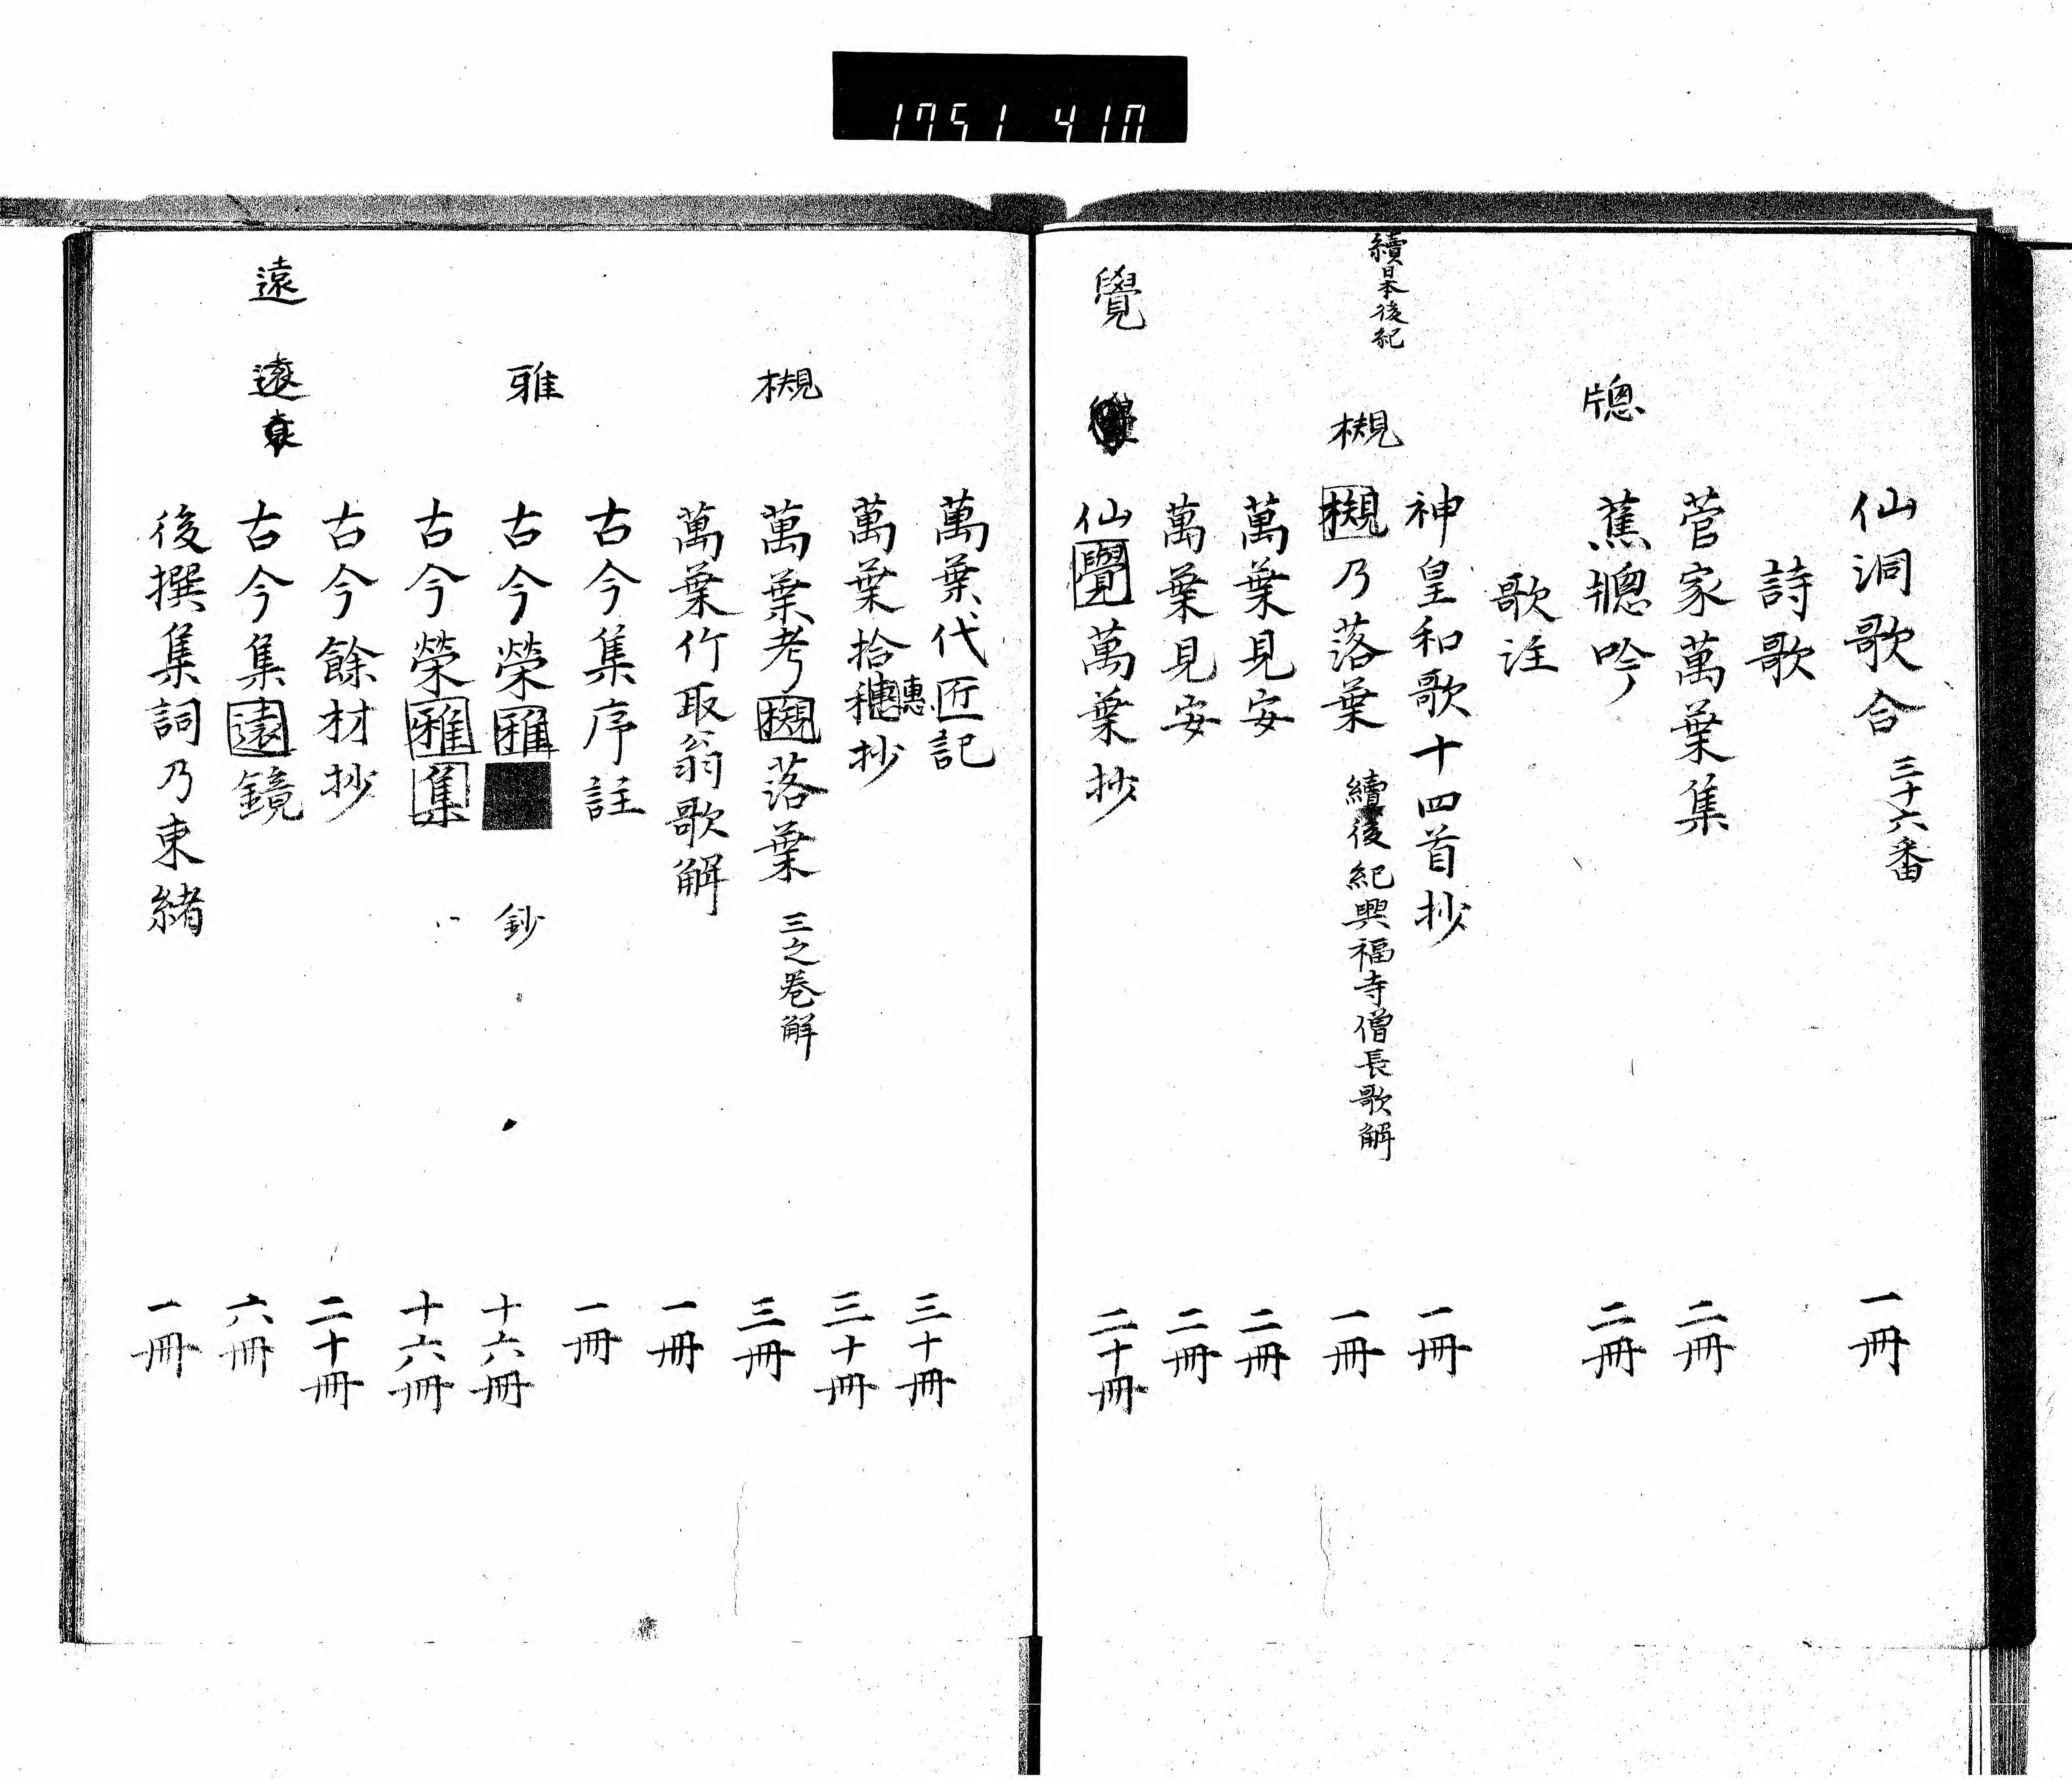 1751 410
仙洞歌合 三十六番 一冊
詩歌
菅家萬葉集 二冊
牕
蕉牕吟 二冊
歌注
續日本後紀
神皇和歌十四首抄 一冊
槻
槻乃落葉 續後紀興福寺僧長歌解 一冊
萬葉見安 二冊
萬葉見安 二冊
覺
仙覺萬葉抄 二十冊
萬葉代匠記 三十冊
萬葉拾穗抄 三十冊
穗
槻
萬葉考槻落葉 三之卷解 三冊
萬葉竹取翁歌解 一冊
古今集序註 一冊
雅
古今榮雅 鈔 十六冊
古今榮雅集 十六冊
古今餘材抄 二十冊
遠 遠
古今集遠鏡 六冊
後撰集詞乃束緒 一冊